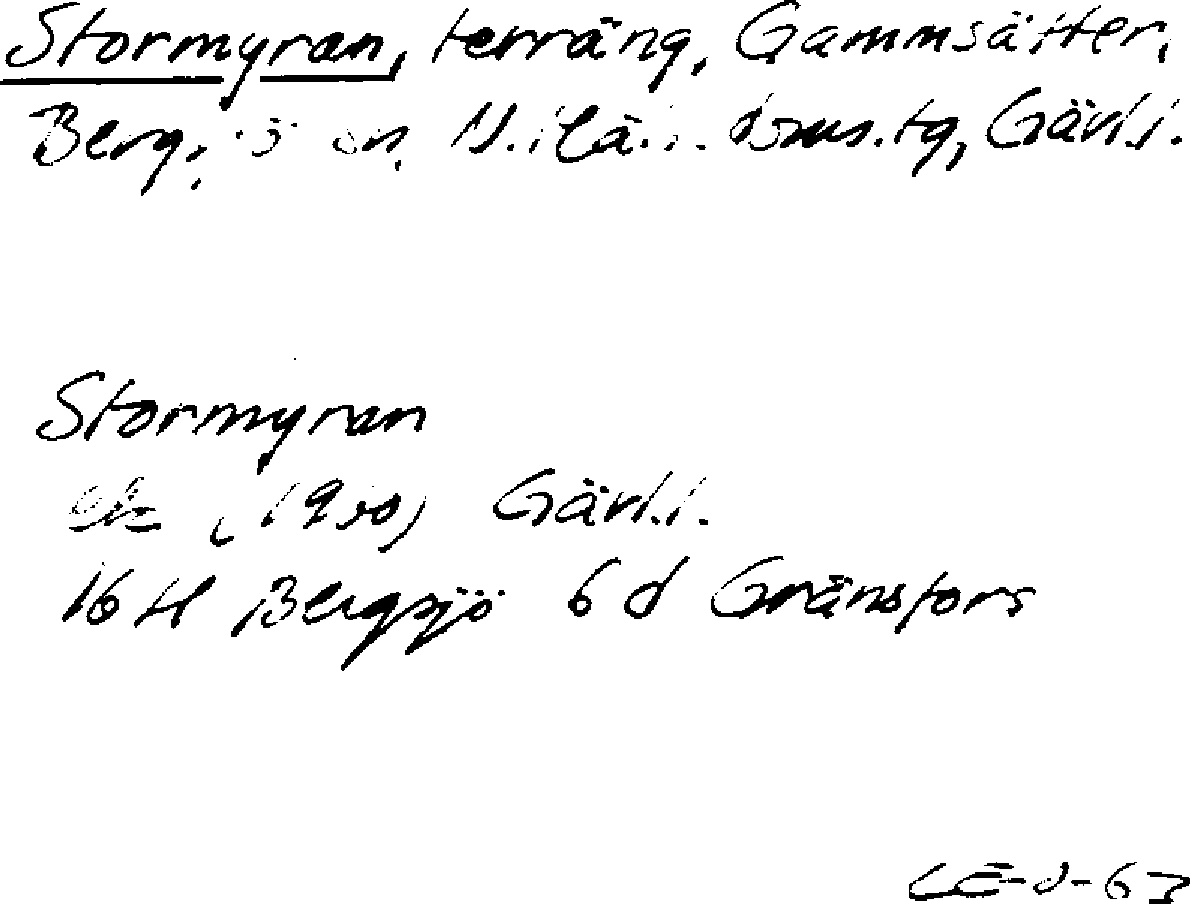 Stormyran, terräng, Gammsätter,
Bergsjö sn, N. Häls. doms.tg, Gävl.l.
Stormyran
ek (1950) Gävl.l.
16 H Bergsjö 6 d Gränsfors